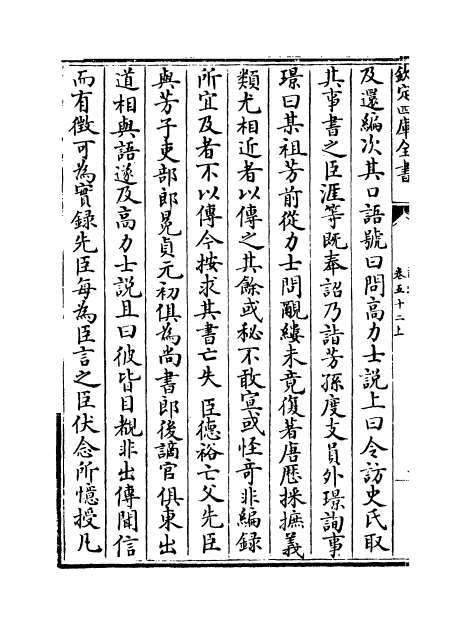 欽定四庫全書
卷五十二上
及還編次其口語號曰問高力士說上曰令訪史氏取
其事書之臣涯等既奉詔乃詣芳孫度支員外璟詢事
璟曰某祖芳前從力士問覼縷未竟復著唐歷採摭義
類尤相近者以傳之其餘或秘不敢宣或怪奇非編錄
所宜及者不以傳今按求其書亡失 臣德裕亡父先臣
與芳子吏部郎晃貞元初俱為尚書郎後謫官俱東出
道相與語遂及高力士說且曰彼皆目覩非出傳聞信
而有徵可為實錄先臣每為臣言之臣伏念所憶授凡